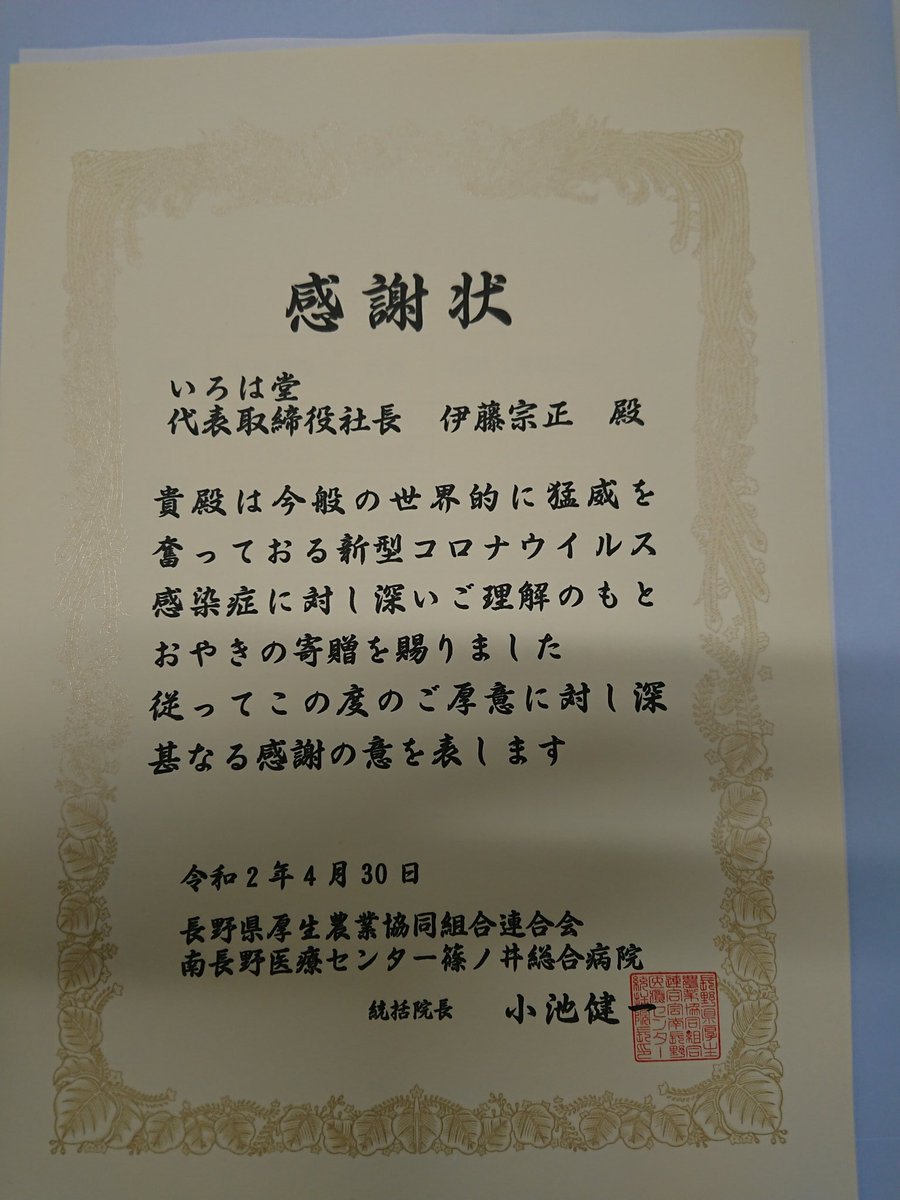 感謝状
いろは堂
代表取締役社長　伊藤宗正　殿
貴殿は今般の世界的に猛威を
奮っておる新型コロナウイルス
感染症に対し深いご理解のもと
おやきの寄贈を賜りました
従ってこの度のご厚意に対し深
甚なる感謝の意を表します
令和2年4月30日
長野県厚生農業協同組合連合会
南長野医療センター篠ノ井総合病院
統括院長　小池健一